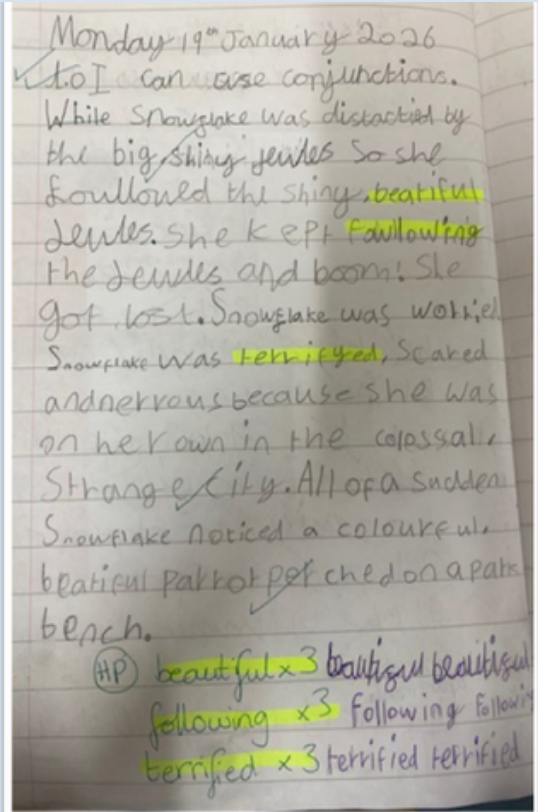 Monday 19th January 2026
t.o I can use conjunctions.
While Snowflake was distactied by
the big, shiny jewles So she
foullowed the shiny, beatiful
Jewles. She kept faullowing
the Jewles and boom! She
got lost. Snowflake was worried
Snowflake was terrifyed, Scared
and nervous because she was
on her own in the colossal,
Strange City. All of a sudden
Snowflake noticed a colourful,
beatiful parrot perched on a park
bench.
HP beautiful x3 beautiful beautiful
following x3 following following
terrified x3 terrified terrified